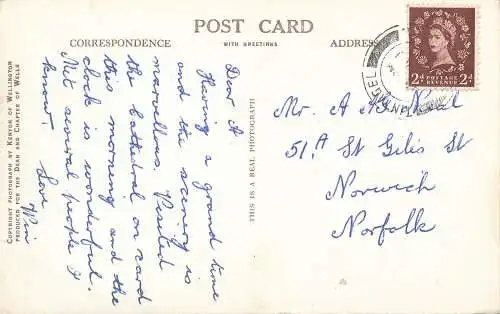 POST CARD
WITH GREETINGS
CORRESPONDENCE
ADDRESS
Dear A
Having a grand time
and the scenery is
marvellous. Visited
the cathedral on card
this morning and the
clock is wonderful.
Met several people I
know
Love
THIS IS A REAL PHOTOGRAPH
COPYRIGHT PHOTOGRAPH BY KENYON OF WELLINGTON
PRODUCED FOR THE DEAN AND CHAPTER OF WELLS
2d POSTAGE REVENUE 2d
Mr. A
51A St Giles St
Norwich
Norfolk